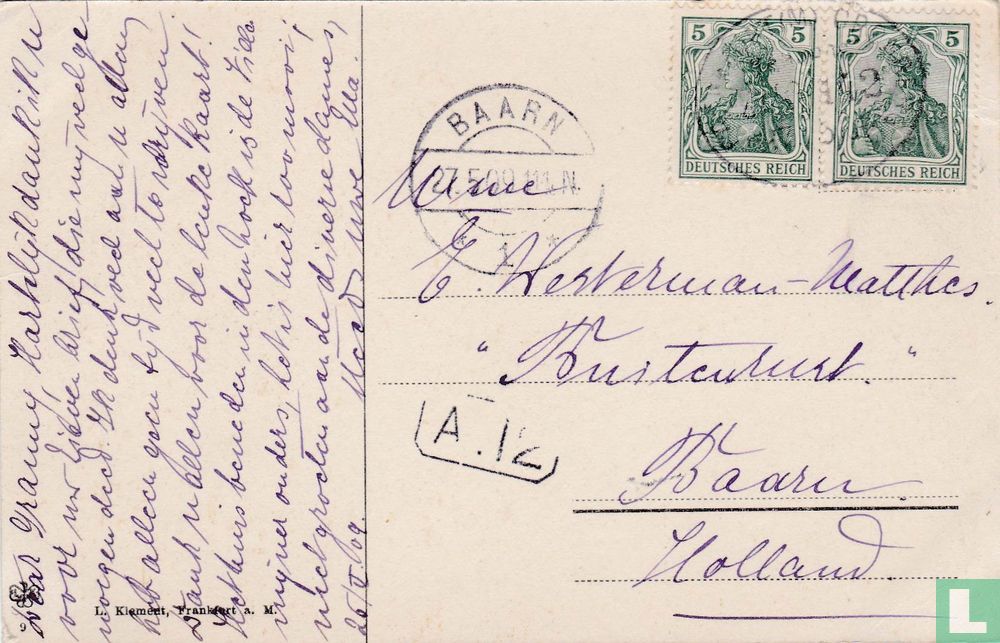 Dear Granny, Hartelijk dank ik u
voor uw lieven brief die mij veel ge-
noegen deed. Ik denk veel aan u allen
heb alleen geen tijd veel te schrijven.
Dank u allen voor de leuke kaart!
Het huis beneden in den hoek is de Villa
mijner ouders, het is hier zoo mooi,
met groeten aan de diverse dames,
Uw Ella.
26/V 09.
BAARN
27.5.09 11-12.N.
* 1 *
5 5
DEUTSCHES REICH
5 5
DEUTSCHES REICH
Mme
E. Westerman-Matthes.
"Buitenrust."
A.12
Baarn.
Holland.
L. Klement, Frankfurt a. M.
9
L